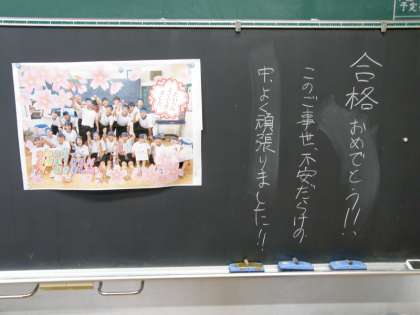 合格おめでとう!!
このご事世、不安だらけの
中、よく頑張りました!!
予定